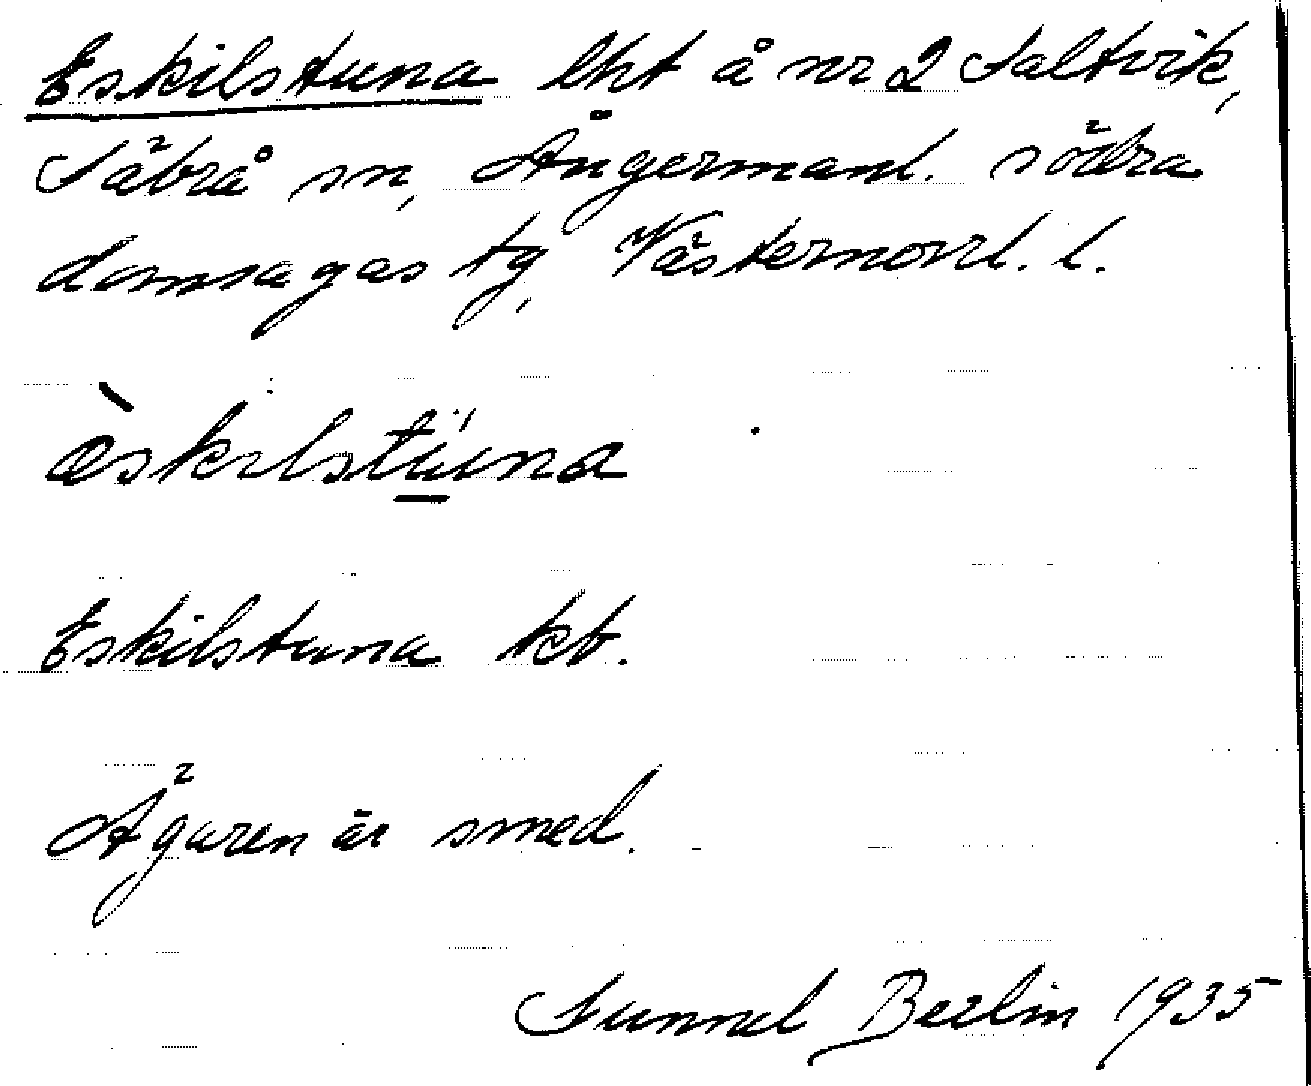 Eskilstuna lht å nr 2 Saltvik,
Säbrå sn, Ångermanl. södra
domsagas tg, Västernorrl. l.
èskilstúna
Eskilstuna kb.
Ägaren är smed.
Gunnel Berlin 1935